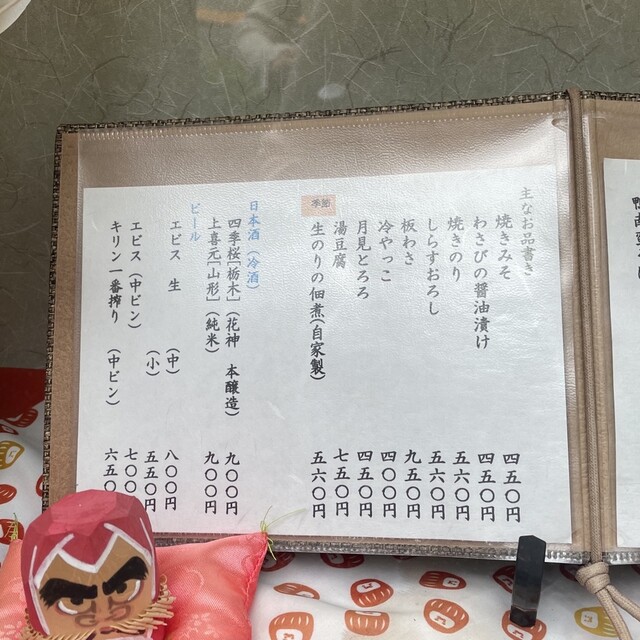 主なお品書き
焼きみそ 四五〇円
わさびの醤油漬け 四五〇円
焼きのり 五六〇円
しらすおろし 五六〇円
板わさ 九五〇円
冷やっこ 四〇〇円
月見とろろ 四五〇円
湯豆腐 七五〇円
季節
生のりの佃煮(自家製) 五六〇円
日本酒（冷酒）
四季桜［栃木］（花神 本醸造） 九〇〇円
上喜元［山形］（純米） 九〇〇円
ビール
エビス 生 （中） 八〇〇円
（小） 五五〇円
エビス（中ビン） 七〇〇
キリン一番搾り （中ビン） 六五〇